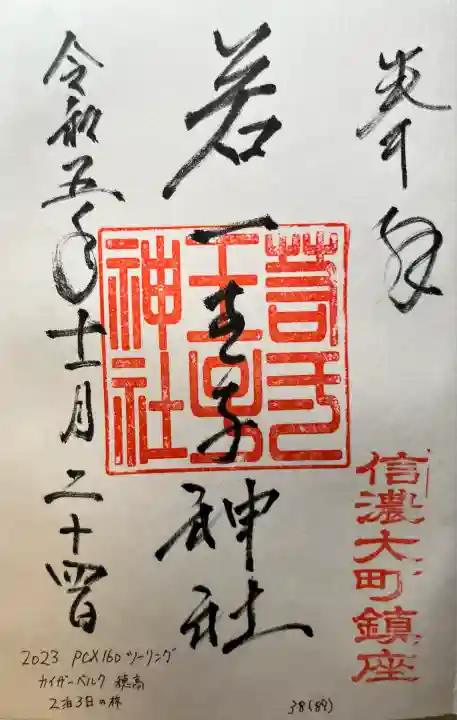 奉拝
信濃大町鎮座
若一王子神社
若一王子神社
令和五年十一月二十四日
2023 PCX160 ツーリング
カイザーベルク 穂高
2泊3日の旅
38(89)